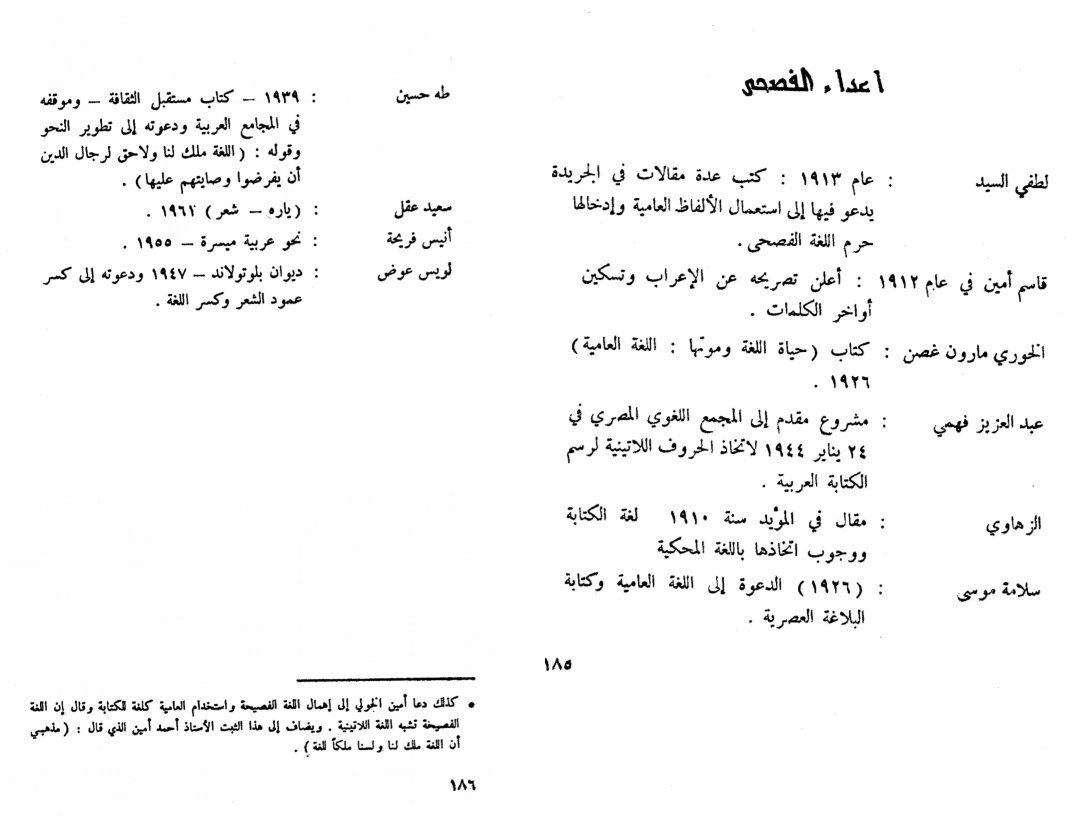 أعداء الفصحى
لطفي السيد : عام ١٩١٣ : كتب عدة مقالات في الجريدة
يدعو فيها إلى استعمال الألفاظ العامية وإدخالها
حرم اللغة الفصحى .
قاسم أمين في عام ١٩١٢ : أعلن تصريحه عن الإعراب وتسكين
أواخر الكلمات .
الخوري مارون غصن : كتاب (حياة اللغة وموتها : اللغة العامية)
١٩٢٦ .
عبد العزيز فهمي : مشروع مقدم إلى المجمع اللغوي المصري في
٢٤ يناير ١٩٤٤ لاتخاذ الحروف اللاتينية لرسم
الكتابة العربية .
الزهاوي : مقال في المؤيد سنة ١٩١٠ لغة الكتابة
ووجوب اتخاذها باللغة المحكية
سلامة موسى : (١٩٢٦) الدعوة إلى اللغة العامية وكتابة
البلاغة العصرية .
١٨٥
طه حسين : ١٩٣٩ – كتاب مستقبل الثقافة – وموقفه
في المجامع العربية ودعوته إلى تطوير النحو
وقوله : (اللغة ملك لنا ولاحق لرجال الدين
أن يفرضوا وصايتهم عليها) .
سعيد عقل : (ياره – شعر) ١٩٦١ .
أنيس فريحة : نحو عربية ميسرة – ١٩٥٥ .
لويس عوض : ديوان بلوتولاند – ١٩٤٧ ودعوته إلى كسر
عمود الشعر وكسر اللغة .
• كذلك دعا أمين الخولي إلى إهمال اللغة الفصيحة واستخدام العامية كلغة للكتابة وقال إن اللغة
الفصيحة تشبه اللغة اللاتينية . ويضاف إلى هذا الثبت الأستاذ أحمد أمين الذي قال : (مذهبي
أن اللغة ملك لنا ولسنا ملكاً للغة) .
١٨٦